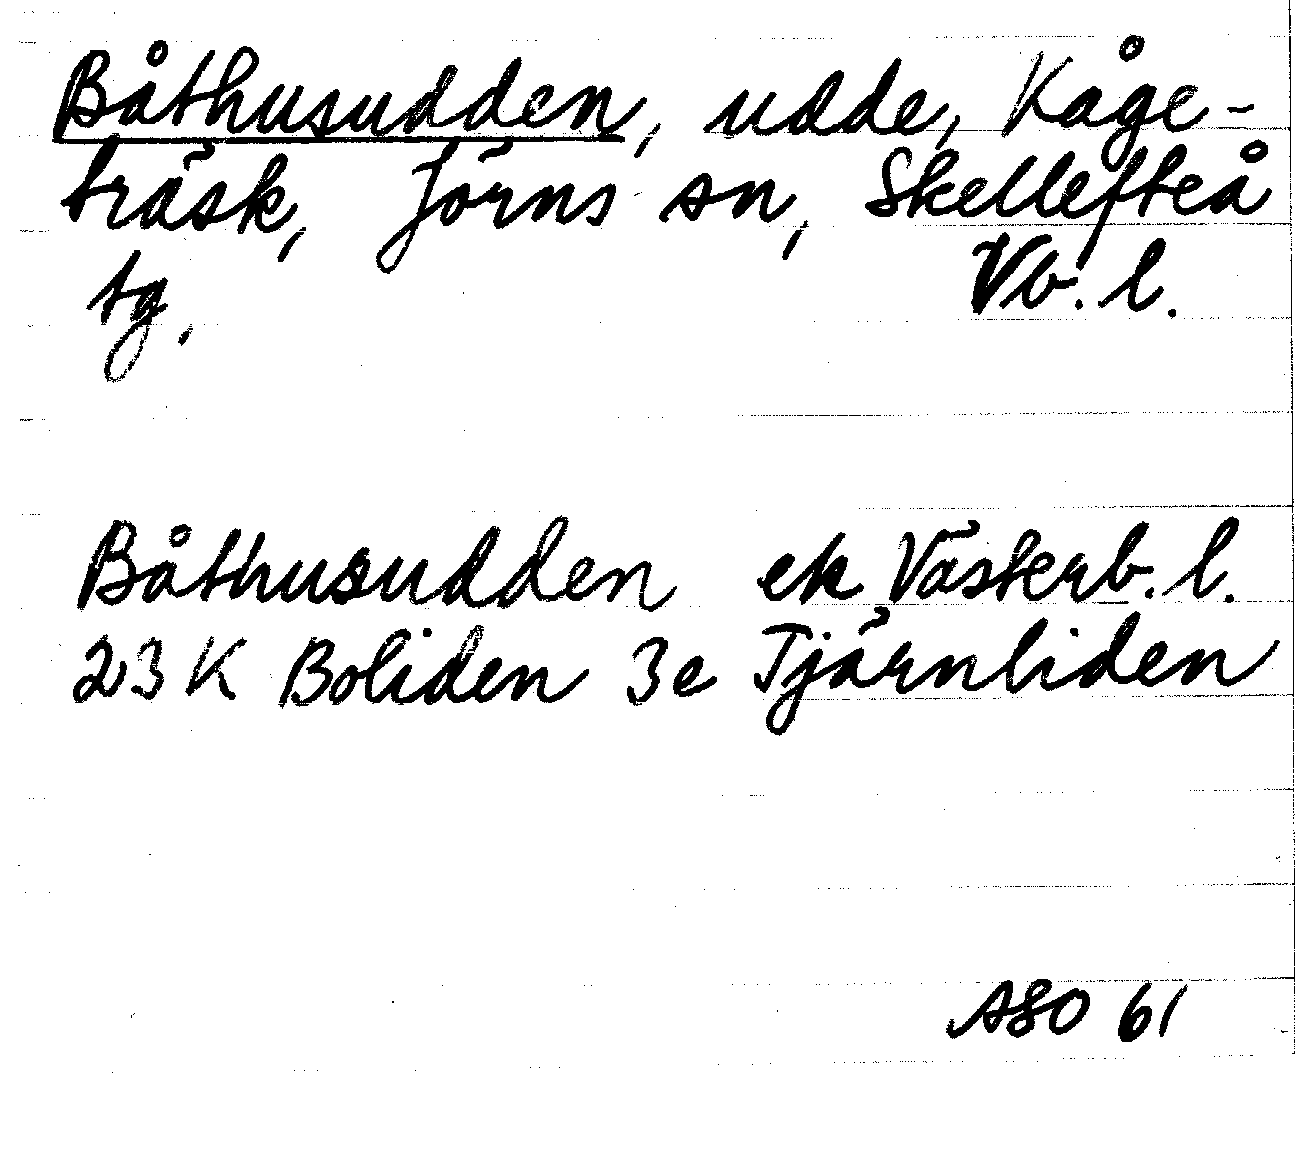 Båthusudden, udde, Kåge-
träsk, Jörns sn, Skellefteå
tg, Vb. l.
Båthusudden ek Västerb. l.
23 K Boliden 3e Tjärnliden
ASO 61